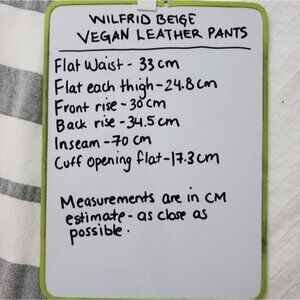 WILFRID BEIGE
VEGAN LEATHER PANTS
Flat Waist - 33 cm
Flat each thigh - 24.8 cm
Front rise - 30 cm
Back rise - 34.5 cm
Inseam - 70 cm
Cuff opening flat - 17.3 cm
Measurements are in CM
estimate - as close as
possible.